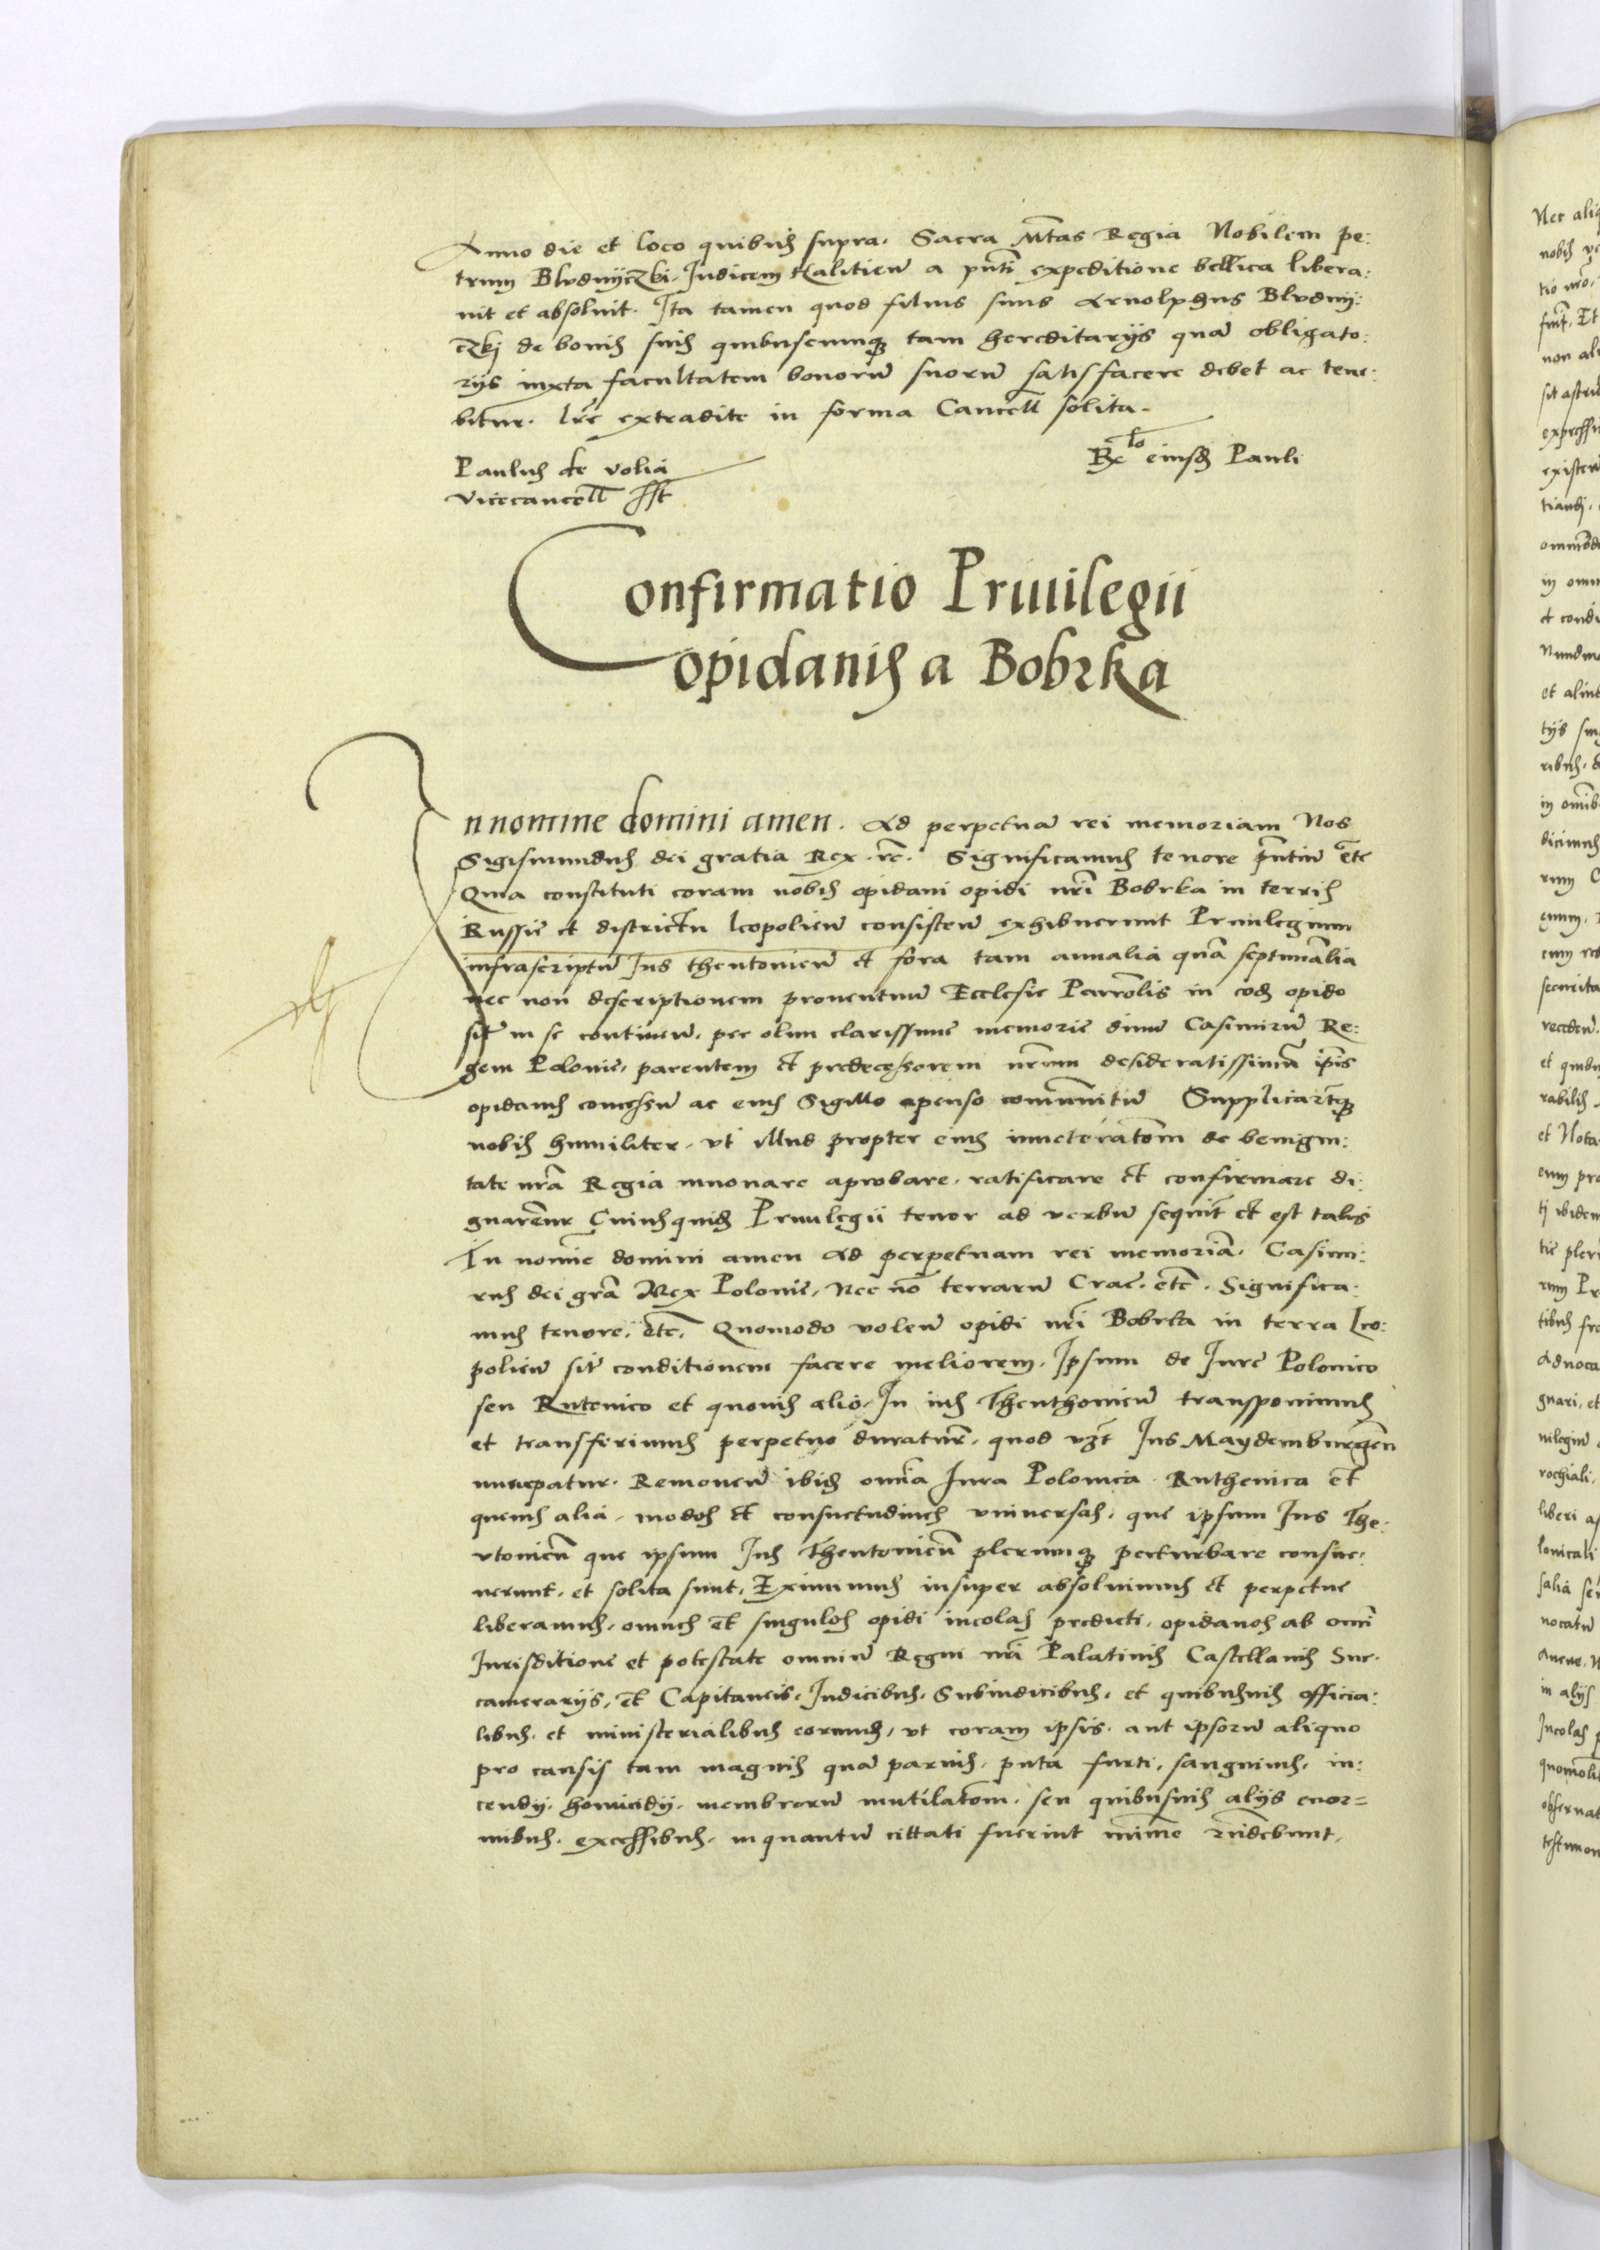 Anno die et loco quibus supra. Sacra Mtas Regia Nobilem pe:
trum Bludnyczki Judicem Halicien a pnti expeditione bellica libera:
uit et absoluit. Ita tamen quod filius suus Arnolphus Bludny:
czkj de bonis suis quibuscumqz tam hereditariis quam obligato:
riis iuxta facultatem bonorum suorum satisfacere debet ac tene:
bitur. lre extradite in forma Cancell solita.
Paulus de volia
vicecancell sst
Rclo eiusd Pauli
Confirmatio Priuilegii
opidanis a Bobrka
In nomine domini amen. Ad perpetuam rei memoriam Nos
Sigismundus dei gratia Rex etc. Significamus tenore pntium etc
Quia constituti coram nobis opidani opidi nri Bobrka in terris
Russie et districtu leopolien consisten exhibuerunt Priuilegium
infrascriptum Jus theutonicum et fora tam annalia quam septimalia
nec non descriptionem prouentuum Ecclesie Parrolis in eod opido
sit in se continen, per olim clarissime memorie diuum Casimirum Re:
gem Polonie, parentem et predecessorem nrum desideratissimum ipis
opidanis concessum ac eius Sigillo apenso communitum Supplicartqz
nobis humiliter, vt illud propter eius inueteratom de benigni:
tate nra Regia innouare aprobare, ratificare et confirmare di:
gnaremur Cuiusquid Priuilegii tenor ad verbum sequit et est talis
In nomie domini amen Ad perpetuam rei memoriam. Casimi:
rus dei gra Rex Polonie, Nec no terrarum Crac. etc. Significa:
mus tenore, etc, Quomodo volen opidi nri Bobrka in terra leo:
polien sit conditionem facere meliorem, Ipsum de Jure Polonico
seu Rutenico et quouis alio, In ius Theuthonicum transponimus
et transferimus perpetuo duratur, quod vzt Jus Maydemburgen
nuncpatur. Remouen ibid omnia Jura Polonica Ruthenica et
queuis alia, modos et consuetudines vniuersas, que ipsum Jus The:
utonicum que ipsum Jus Theutonicum plerumqz perturbare consue:
uerunt, et solita sunt, Eximimus insuper absoluimus et perpetue
liberamus, omnes et singulos opidi incolas predicti, opidanos ab omni
Jurisditione et potestate omnium Regni nri Palatinis Castellanis Suc:
camerariis, et Capitaneis, Judicibus, Subiudicibus, et quibusuis officia:
libus, et ministerialibus eorumd, vt coram ipsis, aut ipsorum aliquo
pro causis tam magnis quam paruis, puta furti, sanguinis, in:
cendij, homicidij, membrorum mutilatom, seu quibusuis aliis enor=
mibus, excessibus, inquantum cittati fuerint minime rndebunt,